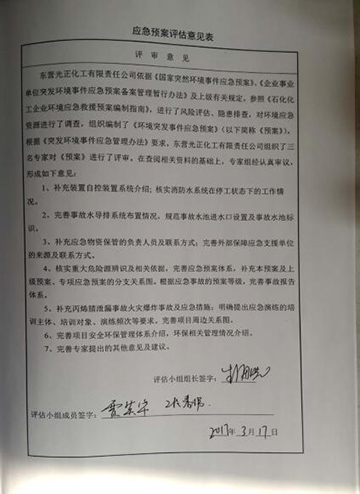 应急预案评估意见表
评 审 意 见
东营光正化工有限责任公司依据《国家突然环境事件应急预案》、《企业事业
单位突发环境事件应急预案备案管理暂行办法》及上级有关规定，参照《石化化
工企业环境应急救援预案编制指南》，进行了风险评估、隐患排查，对环境应急
资源进行了调查，组织编制了《环境突发事件应急预案》（以下简称《预案》）。
根据《突发环境事件应急管理办法》要求，东营光正化工有限责任公司组织了三
名专家对《预案》进行了评审。在查阅相关资料的基础上，专家组经认真审议，
形成如下意见：
1、补充装置自控装置系统介绍；核实消防水系统在停工状态下的工作情
况。
2、完善事故水导排系统布置情况，规范事故水池进水口设置及事故水池标
识。
3、补充应急物资保管的负责人员及联系方式；完善外部保障应急支援单位
的来源及联系方式。
4、核实重大危险源辨识及相关依据，完善应急预案体系，补充本预案及上
级预案、专项应急预案的分支关系图。根据应急事故的预案等级，完善事故报告
体系。
5、补充丙烯腈泄漏事故火灾爆炸事故及应急措施；明确提出应急演练的培
训主体、培训对象、演练频次等要求。完善项目周边关系图。
6、完善项目安全环保管理体系介绍，环保相关管理情况介绍。
7、完善专家提出的其他意见及建议。
评估小组组长签字：
评估小组成员签字：
2017年 3月 17日